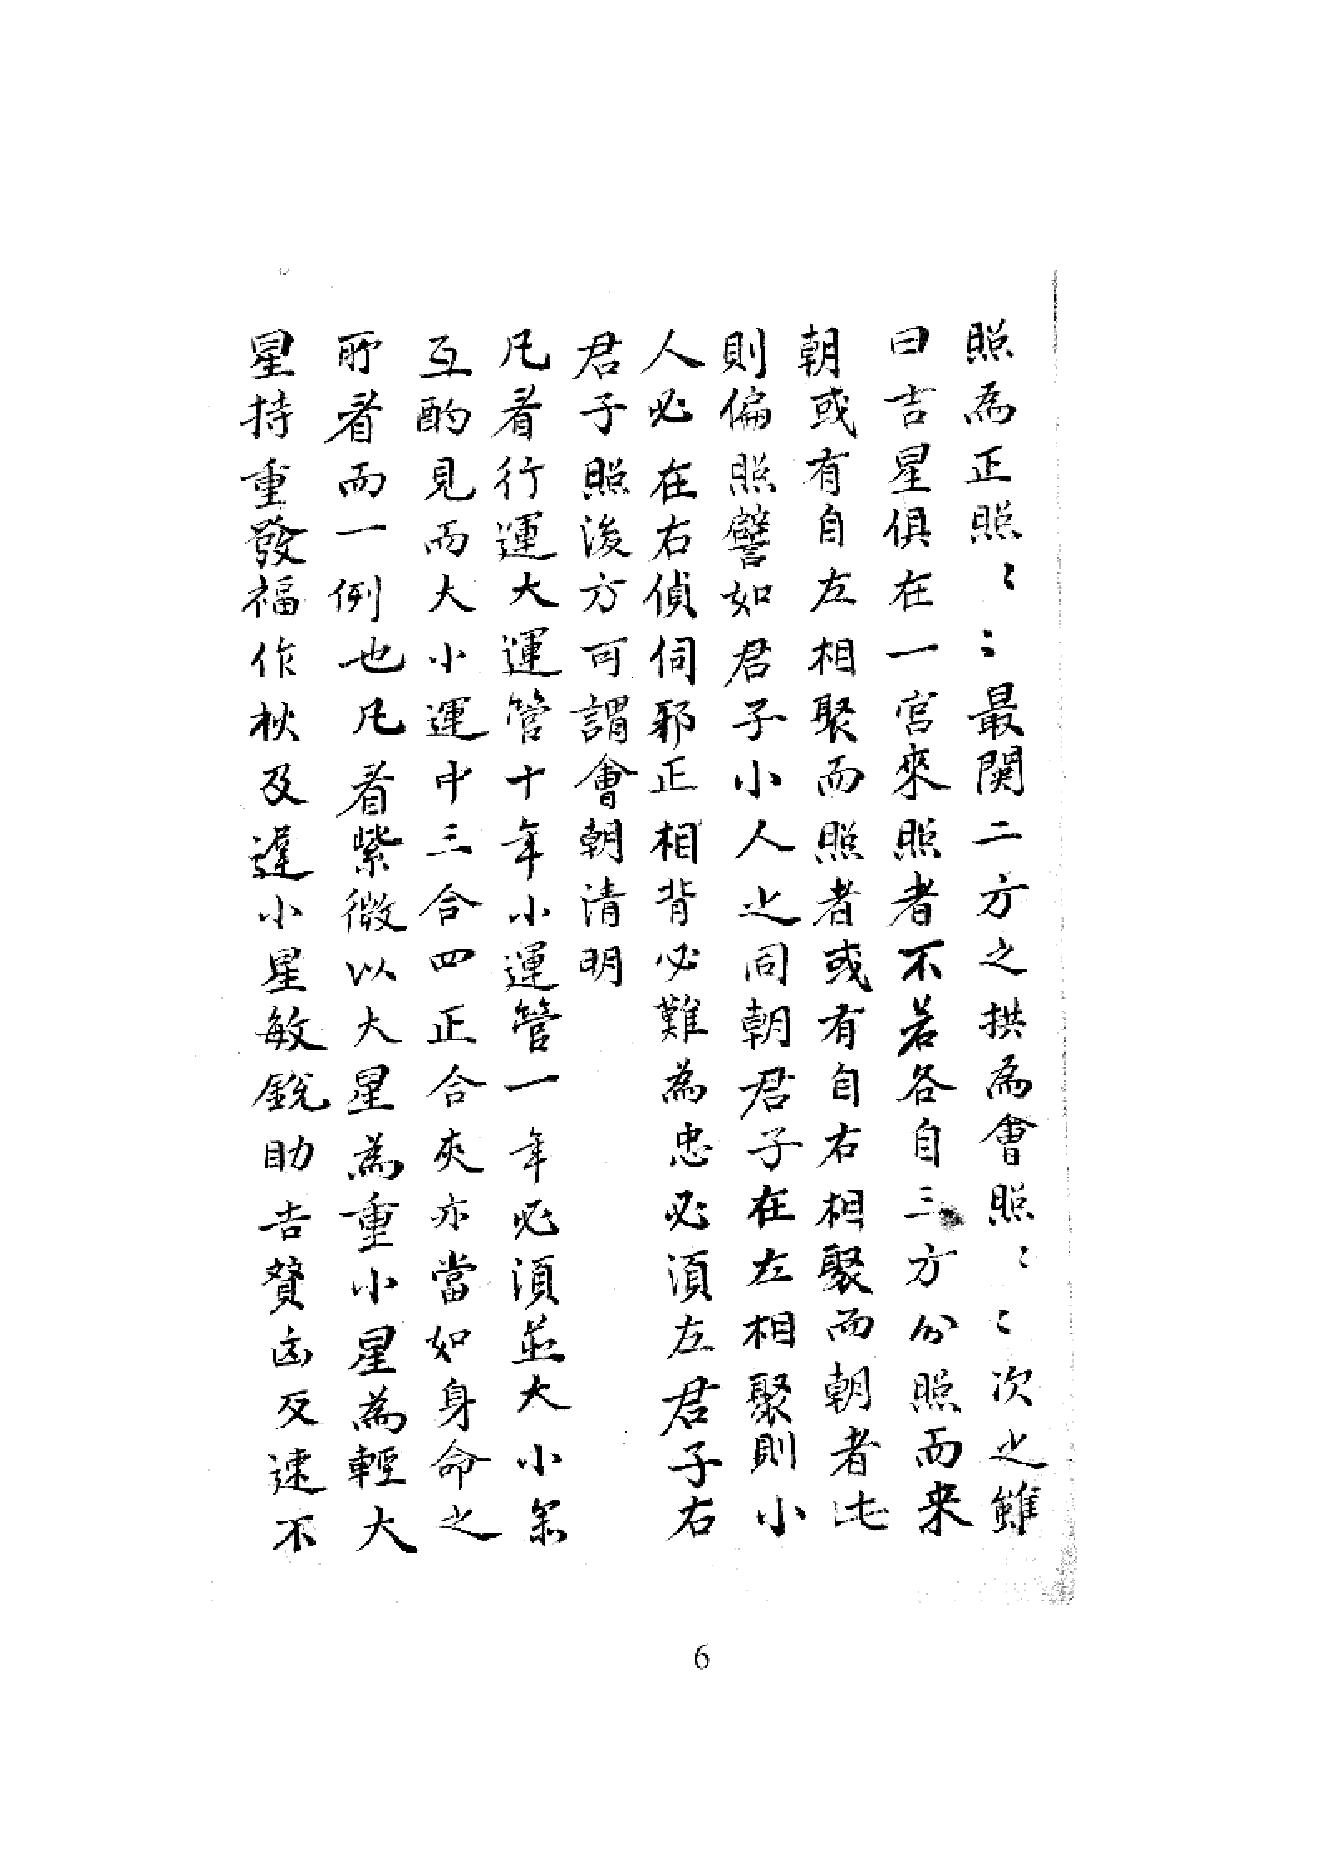 照為正照〻〻最関二方之拱為會照〻〻次之雖
曰吉星俱在一宮來照者不若各自三方分照而来
朝或有自左相聚而照者或有自右相聚而朝者此
則偏照譬如君子小人之同朝君子在左相聚則小
人必在右偵伺邪正相背必難為忠必須左君子右
君子照後方可謂會朝清明
凡看行運大運管十年小運管一年必須並大小
互酌見而大小運中三合四正合夾亦當如身命之
所看而一例也凡看紫微以大星為重小星為輕大
星持重發福作秋及遲小星敏銳助吉贊凶反速不
6